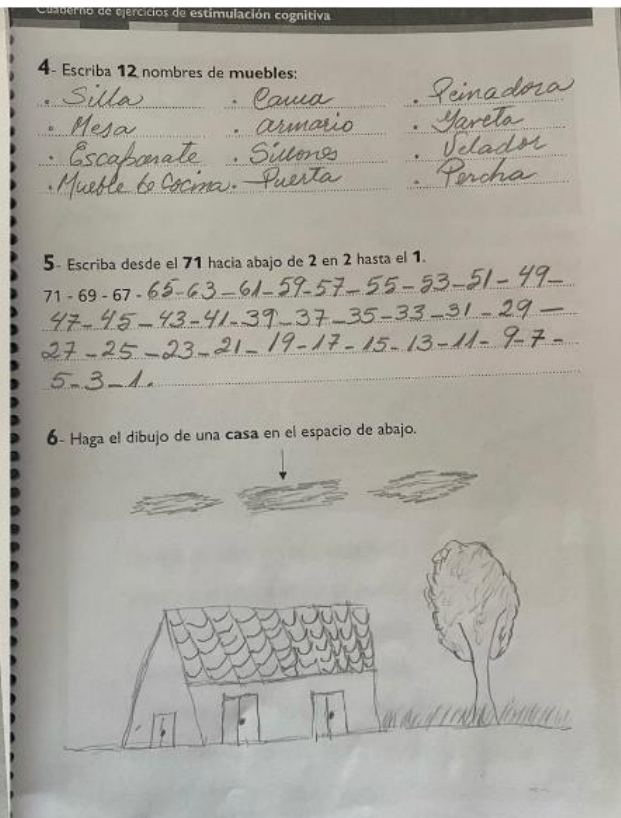 Cuaderno de ejercicios de estimulación cognitiva
4- Escriba 12 nombres de muebles:
. Silla . Cama . Peinadora
. Mesa . armario . Gaveta
. Escaparate . Sillones . Velador
. Mueble de Cocina . Puerta . Percha
5- Escriba desde el 71 hacia abajo de 2 en 2 hasta el 1.
71 - 69 - 67 - 65-63-61-59-57-55-53-51-49-
47-45-43-41-39-37-35-33-31-29-
27-25-23-21-19-17-15-13-11-9-7-
5-3-1.
6- Haga el dibujo de una casa en el espacio de abajo.